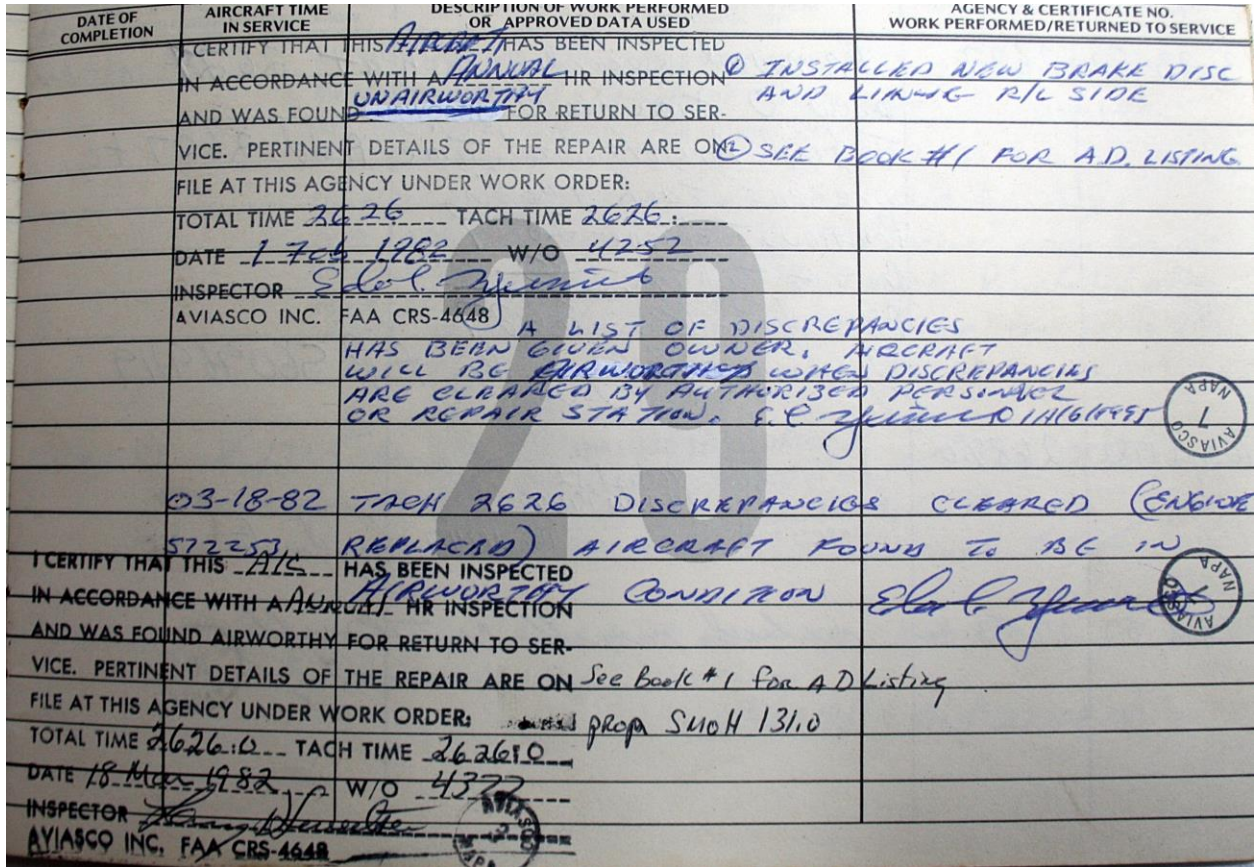 DATE OF COMPLETION
AIRCRAFT TIME IN SERVICE
DESCRIPTION OF WORK PERFORMED OR APPROVED DATA USED
AGENCY & CERTIFICATE NO. WORK PERFORMED/RETURNED TO SERVICE
I CERTIFY THAT THIS AIRCRAFT HAS BEEN INSPECTED
IN ACCORDANCE WITH A ANNUAL HR INSPECTION
AND WAS FOUND UNAIRWORTHY FOR RETURN TO SER-
VICE. PERTINENT DETAILS OF THE REPAIR ARE ON
FILE AT THIS AGENCY UNDER WORK ORDER:
TOTAL TIME 2626 TACH TIME 2626:
DATE 1 Feb 1982 W/O 4252
INSPECTOR
AVIASCO INC. FAA CRS-4648
① INSTALLED NEW BRAKE DISC
AND LINING R/L SIDE
② SEE BOOK #1 FOR A.D. LISTING
29
A LIST OF DISCREPANCIES
HAS BEEN GIVEN OWNER. AIRCRAFT
WILL BE AIRWORTHY WHEN DISCREPANCIES
ARE CLEARED BY AUTHORIZED PERSONNEL
OR REPAIR STATION.
AVIASCO 7 NAPA
03-18-82 TACH 2626 DISCREPANCIES CLEARED (ENGINE
572253 REPLACED) AIRCRAFT FOUND TO BE IN
AIRWORTHY CONDITION
AVIASCO NAPA
I CERTIFY THAT THIS A/C HAS BEEN INSPECTED
IN ACCORDANCE WITH A Annual HR INSPECTION
AND WAS FOUND AIRWORTHY FOR RETURN TO SER-
VICE. PERTINENT DETAILS OF THE REPAIR ARE ON
FILE AT THIS AGENCY UNDER WORK ORDER:
TOTAL TIME 2626:0 TACH TIME 2626:0
DATE 18 Mar 1982 W/O 4377
INSPECTOR
AVIASCO INC. FAA CRS-4648
See Book #1 for AD Listing
prop SMOH 131.0
AVIASCO 2 NAPA